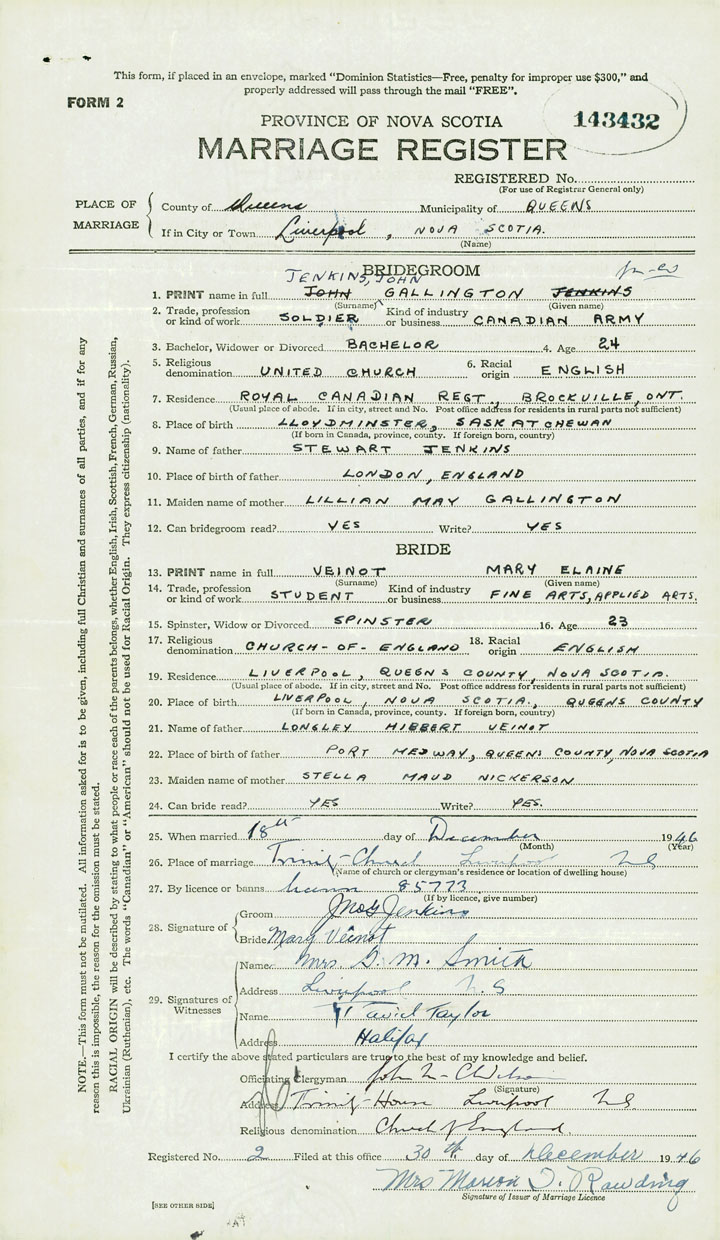 This form, if placed in an envelope, marked “Dominion Statistics—Free, penalty for improper use $300,” and
properly addressed will pass through the mail “FREE”.
FORM 2
143432
PROVINCE OF NOVA SCOTIA
MARRIAGE REGISTER
REGISTERED No.
(For use of Registrar General only)
PLACE OF MARRIAGE
County of Queens Municipality of QUEENS
If in City or Town Liverpool, NOVA SCOTIA.
(Name)
BRIDEGROOM
JENKINS, JOHN
1. PRINT name in full JOHN GALLINGTON JENKINS
(Surname) (Given name)
2. Trade, profession or kind of work SOLDIER Kind of industry or business CANADIAN ARMY
3. Bachelor, Widower or Divorced BACHELOR 4. Age 24
5. Religious denomination UNITED CHURCH 6. Racial origin ENGLISH
7. Residence ROYAL CANADIAN REGT., BROCKVILLE, ONT.
(Usual place of abode. If in city, street and No. Post office address for residents in rural parts not sufficient)
8. Place of birth LLOYDMINSTER, SASKATCHEWAN
(If born in Canada, province, county. If foreign born, country)
9. Name of father STEWART JENKINS
10. Place of birth of father LONDON, ENGLAND
11. Maiden name of mother LILLIAN MAY GALLINGTON
12. Can bridegroom read? YES Write? YES
BRIDE
13. PRINT name in full VEINOT MARY ELAINE
(Surname) (Given name)
14. Trade, profession or kind of work STUDENT Kind of industry or business FINE ARTS, APPLIED ARTS.
15. Spinster, Widow or Divorced SPINSTER 16. Age 23
17. Religious denomination CHURCH-OF-ENGLAND 18. Racial origin ENGLISH
19. Residence LIVERPOOL, QUEENS COUNTY, NOVA SCOTIA.
(Usual place of abode. If in city, street and No. Post office address for residents in rural parts not sufficient)
20. Place of birth LIVERPOOL, NOVA SCOTIA, QUEENS COUNTY
(If born in Canada, province, county. If foreign born, country)
21. Name of father LONGLEY HIBBERT VEINOT
22. Place of birth of father PORT MEDWAY, QUEENS COUNTY, NOVA SCOTIA
23. Maiden name of mother STELLA MAUD NICKERSON
24. Can bride read? YES Write? YES.
25. When married 18th day of December 1946
(Month) (Year)
26. Place of marriage Trinity Church Liverpool N.S
(Name of church or clergyman's residence or location of dwelling house)
27. By licence or banns 85773
(If by licence, give number)
28. Signature of
Groom Jno G Jenkins
Bride Mary Veinot
29. Signatures of Witnesses
Name Mrs D. M. Smith
Address Liverpool N.S
Name David Taylor
Address Halifax
I certify the above stated particulars are true to the best of my knowledge and belief.
Officiating Clergyman John
(Signature)
Address Trinity House Liverpool N.S.
Religious denomination Church of England.
Registered No. 2 Filed at this office 30th day of December 1946
Mrs Marion Rawding
Signature of Issuer of Marriage Licence
[SEE OTHER SIDE]
NOTE.—This form must not be mutilated. All information asked for is to be given, including full Christian and surnames of all parties, and if for any
reason this is impossible, the reason for the omission must be stated.
RACIAL ORIGIN will be described by stating to what people or race each of the parents belongs, whether English, Irish, Scottish, French, German, Russian,
Ukrainian (Ruthenian), etc. The words “Canadian” or “American” should not be used for Racial Origin. They express citizenship (nationality).